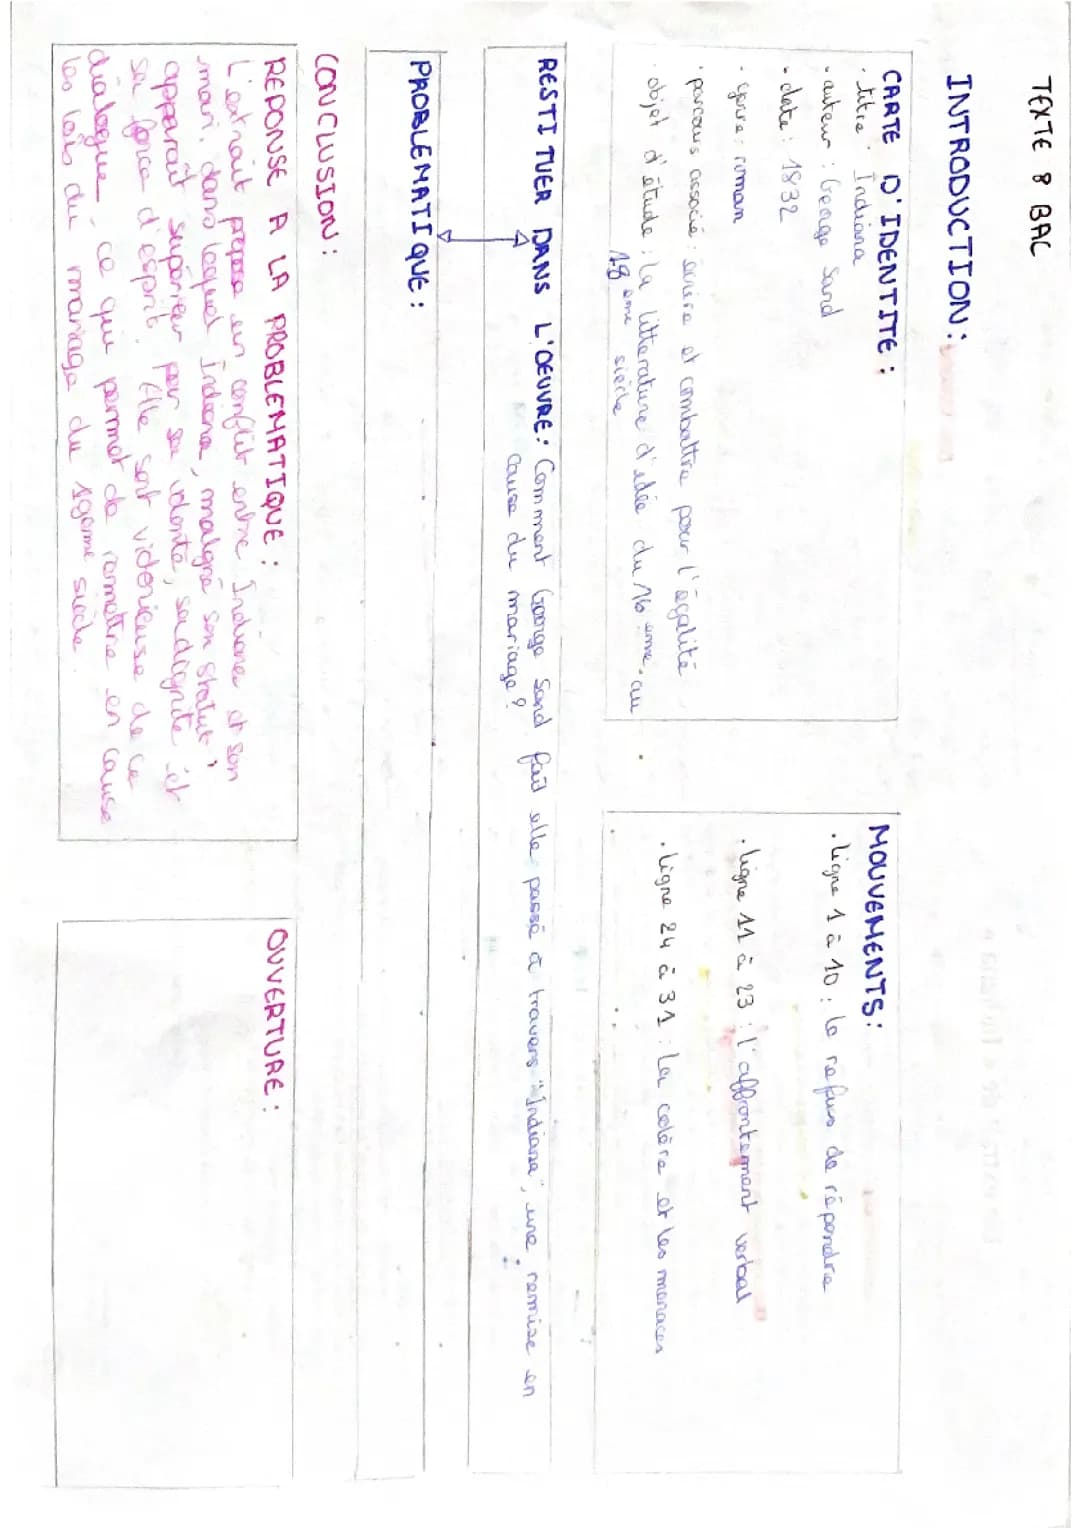 TEXTE 8 BAC
INTRODUCTION :
CARTE D'IDENTITE :
· titre : Indiana
· auteur : George Sand
· date : 1832
· genre : roman
· parcours associé : écrire et combattre pour l'égalité
· objet d'étude : la litterature d'idée du 16 eme au
18 eme siècle
MOUVEMENTS :
· ligne 1 à 10 : le refus de répondre
· ligne 11 à 23 : l'affrontement verbal
· ligne 24 à 31 : la colère et les menaces
RESTITUER DANS L'OEUVRE : Comment George Sand fait elle passé à travers "Indiana", une remise en
cause du mariage ?
PROBLEMATIQUE :
CONCLUSION :
REPONSE A LA PROBLEMATIQUE :
L'extrait propose un conflit entre Indiana et son
mari, dans lequel Indiana, malgré son statut,
apparait supérieur par sa volonté, sa dignité et
sa force d'esprit. Elle sort victorieuse de ce
dialogue ce qui permet de remettre en cause
les lois du mariage du 19eme siècle.
OUVERTURE :